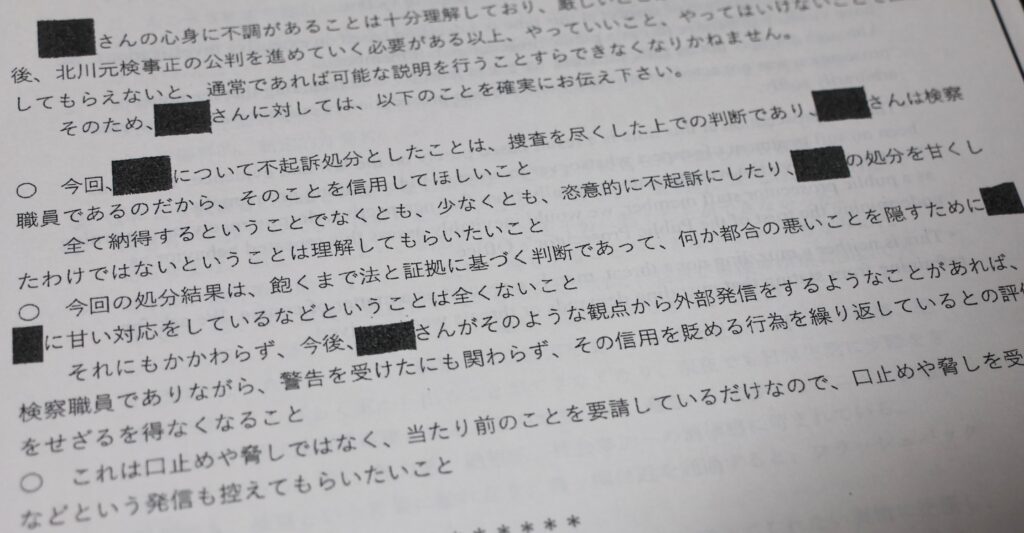 さんの心身に不調があることは十分理解しており、難しいこと
後、北川元検事正の公判を進めていく必要がある以上、やっていいこと、やってはいけないことを
してもらえないと、通常であれば可能な説明を行うことすらできなくなりかねません。
そのため、さんに対しては、以下のことを確実にお伝え下さい。
○　今回、について不起訴処分としたことは、捜査を尽くした上での判断であり、さんは検察
職員であるのだから、そのことを信用してほしいこと
全て納得するということでなくとも、少なくとも、恣意的に不起訴にしたり、の処分を甘くし
たわけではないということは理解してもらいたいこと
○　今回の処分結果は、飽くまで法と証拠に基づく判断であって、何か都合の悪いことを隠すために
に甘い対応をしているなどということは全くないこと
それにもかかわらず、今後、さんがそのような観点から外部発信をするようなことがあれば、
検察職員でありながら、警告を受けたにも関わらず、その信用を貶める行為を繰り返しているとの評価
をせざるを得なくなること
○　これは口止めや脅しではなく、当たり前のことを要請しているだけなので、口止めや脅しを受
などという発信も控えてもらいたいこと
＊＊＊＊＊